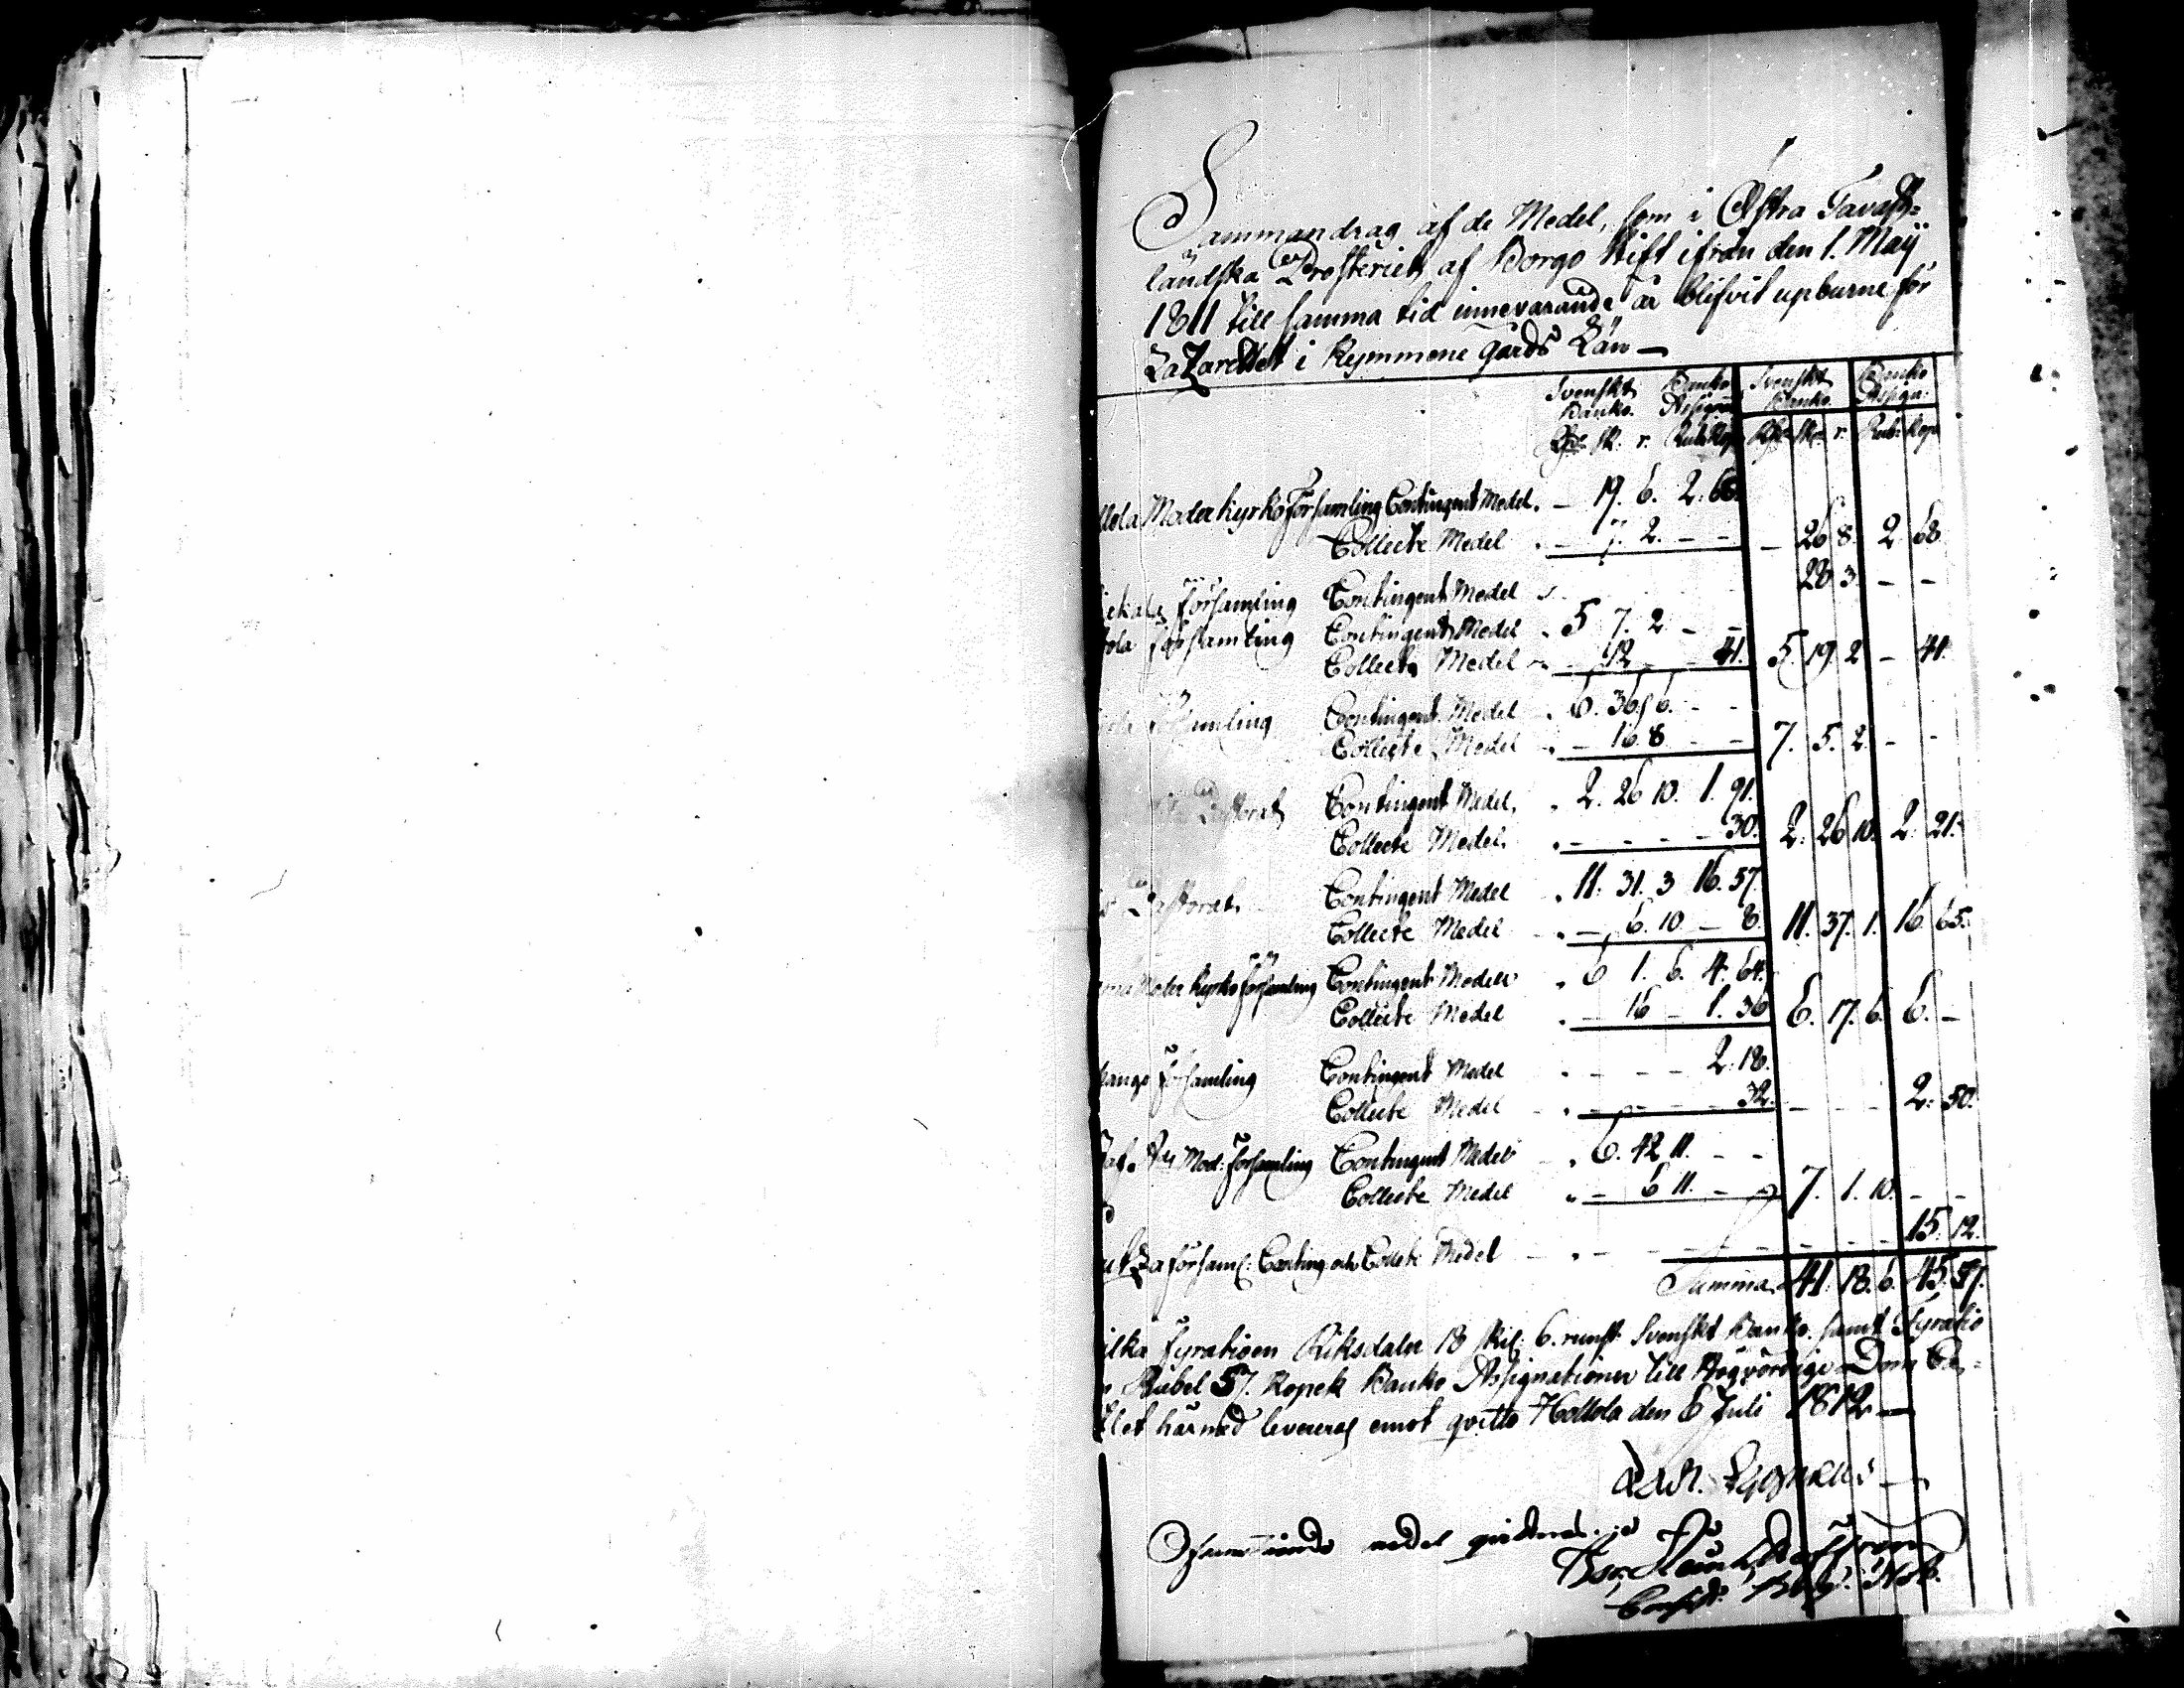 Sammandrag af de Medel, som i Östra Tavast=
ländska Prosteriet af Borgo Stift ifrån den 1. Maÿ
1811 till samma tid innevarande år blifvit upburne för
Lazarettet i Kymmene gårds Län —
Svenskt Banko Svenskt Banko
Banko. Assign. Banko. Assign.
Rdr sk. r. Rub. Kop. Rdr sk. r. Rub. Kop.
llola Moderkyrko Församling Contingent Medel. — 19. 6. 2. 68.
Collecte Medel — 7. 2. — — — 26 8. 2 68
Församling Contingent Medel 28 3 — —
ola församling Contingent Medel . 5 7. 2 — —
Collecte Medel — 12 — — 41. 5. 19. 2 — 41.
Församling Contingent Medel . 6. 36. 6. — —
Collecte Medel . — 16. 8 — — 7. 5. 2. — —
Pastorat Contingent Medel. . 2. 26 10. 1. 91.
Collecte Medel. . — — — — 30. 2. 26 10. 2. 21.
Pastorat. Contingent Medel . 11. 31. 3 16. 57.
Collecte Medel . — 6. 10 — 8. 11. 37. 1. 16 65.
Moder kyrko församling Contingent Medel . 6 1. 6. 4. 64.
Collecte Medel . — 16 — 1. 36 6. 17. 6. 6. —
Församling Contingent Medel . — — — 2. 18.
Collecte Medel . — — — — 32. — — — 2. 50.
Mod: Församling Contingent Medel . 6. 42 11. — —
Collecte Medel — 6 11. — 7. 1. 10. — —
församl: Conting och Collecte Medel — — — — — — — — 15. 12.
Summa 41. 18. 6. 45. 57.
ilka Fyratioen Riksdaler 18 skil: 6. runst: Svenskt Banko. samt Fyratio
Rubel 57. Kopek Banko Assignationer till Högvördige Dom Ca=
tlet härmed levereras emot qvitto Hollola den 6 Juli 1812 —